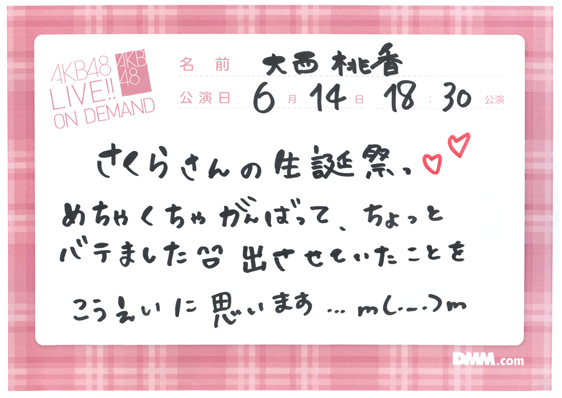 AKB48
LIVE!!
ON DEMAND
AKB
48
名前 大西桃香
公演日 6月14日 18:30 公演
さくらさんの生誕祭っ
めちゃくちゃがんばって、ちょっと
バテました 出させていたことを
こうえいに思います…m(._.)m
DMM.com